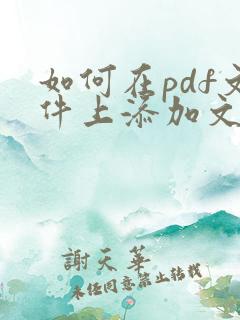 如何在pdf文
件上添加文
謝天華
未经同意禁止转载